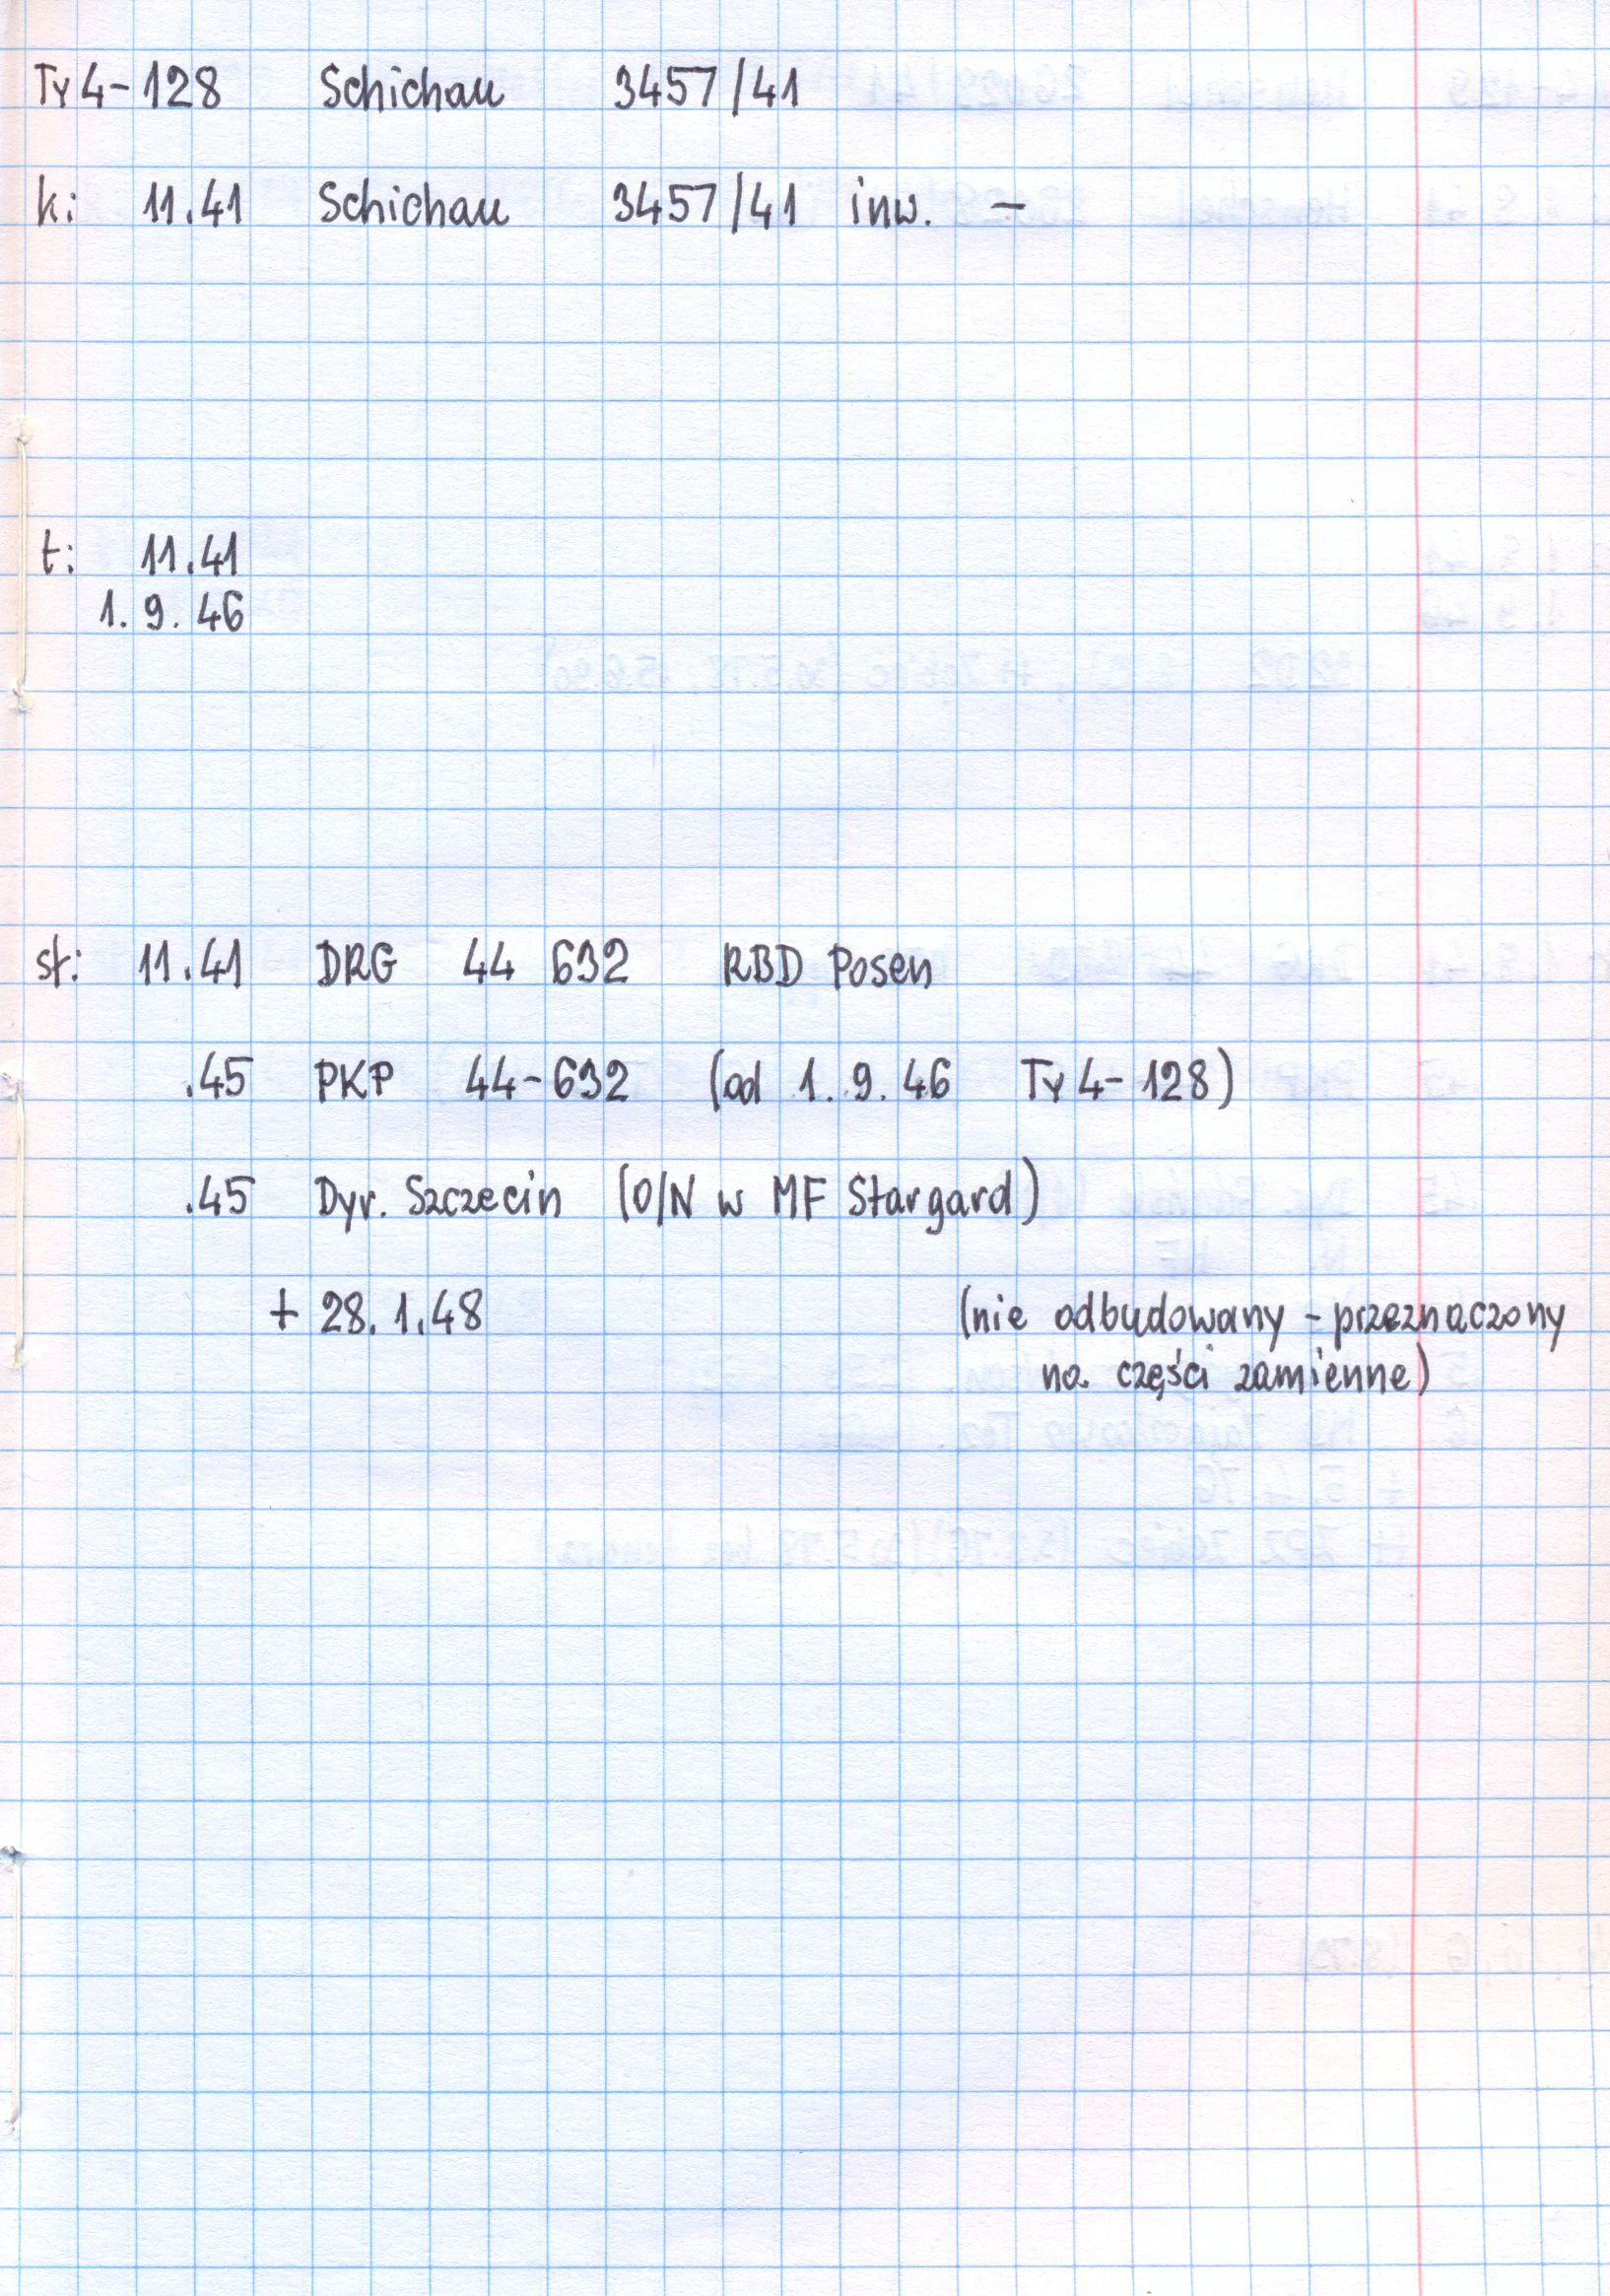 Ty4-128 Schichau 3457/41
k: 11.41 Schichau 3457/41 inw. -
t: 11.41
1. 9. 46
st: 11.41 DRG 44 632 RBD Posen
.45 PKP 44-632 (od 1. 9. 46 Ty4-128)
.45 Dyr. Szczecin (O/N w MF Stargard)
+ 28. 1. 48 (nie odbudowany - przeznaczony
na części zamienne)